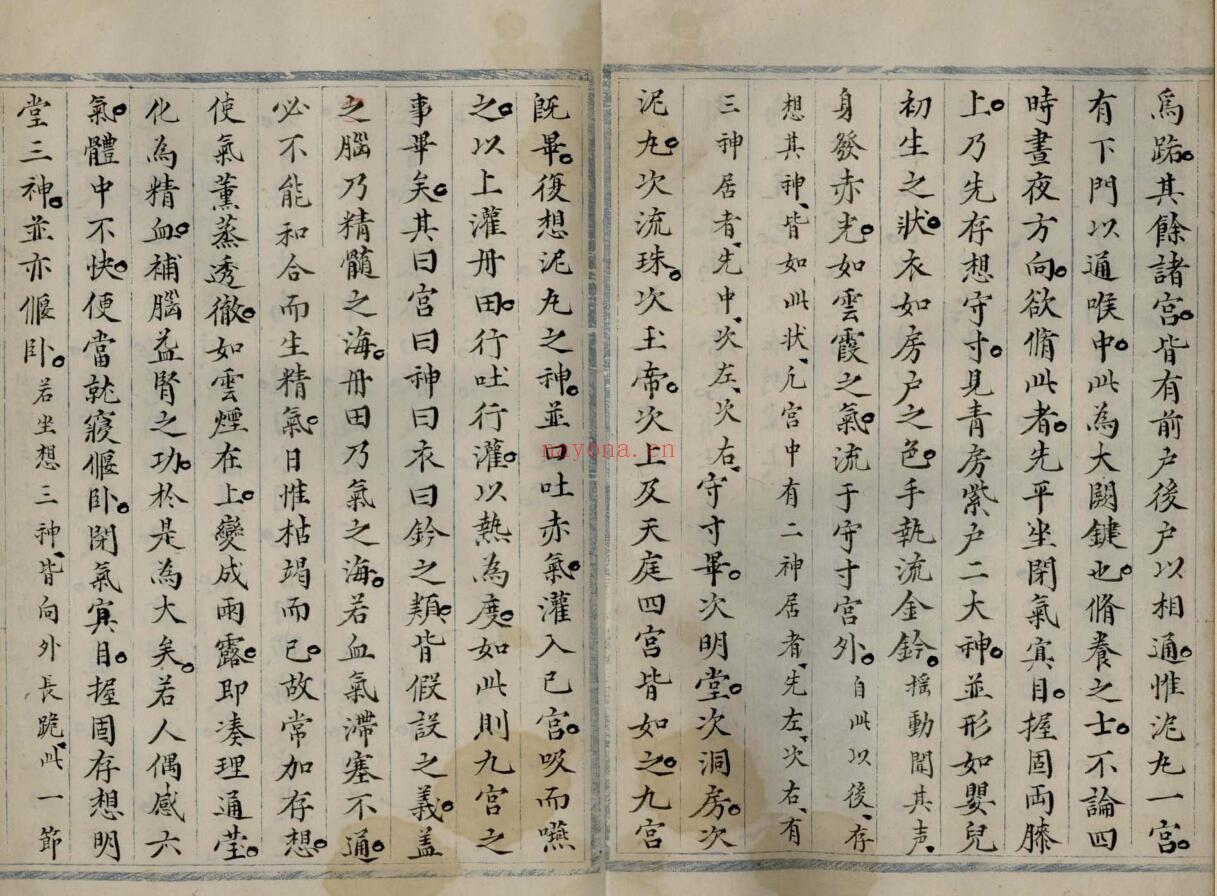 爲路。其餘諸宮。皆有前户後户以相通。惟泥丸一宮。
有下門以通喉中。此為大闗鍵也。脩養之士。不論四
時晝夜方向。欲脩此者。先平坐閉氣㝠目。握固両膝
上。乃先存想守寸。見青房紫户二大神。並形如嬰兒
初生之狀。衣如房户之色。手執流金鈴。揺動聞其声、
身發赤光。如雲霞之氣。流于守寸宮外。自此以後、存
想其神、皆如此状、凢宮中有二神居者、先左、次右、有
三神居者、先中、次左、次右、守寸畢。次明堂。次洞房。次
泥丸。次流珠。次玉帝。次上及天庭四宮皆如之。九宮
既畢。復想泥丸之神。並口吐赤氣。灌入己宮。吸而嚥
之。以上灌丹田。行吐行灌。以熱為度。如此則九宮之
事畢矣。其曰宮曰神曰衣曰鈴之類。皆假設之義。盖
之腦乃精髓之海。丹田乃氣之海。若血氣滯塞不通。
必不能和合而生精氣。日惟枯竭而已。故常加存想。
使氣薰蒸透徹。如雲煙在上。變成雨露。即凑理通瑩。
化為精血。補腦益腎之功。於是為大矣。若人偶感六
氣。體中不快。便當就寢偃卧。閉氣㝠目。握固存想明
堂三神。並亦偃卧。若坐想三神、皆向外長跪、此一節
nayona.cn